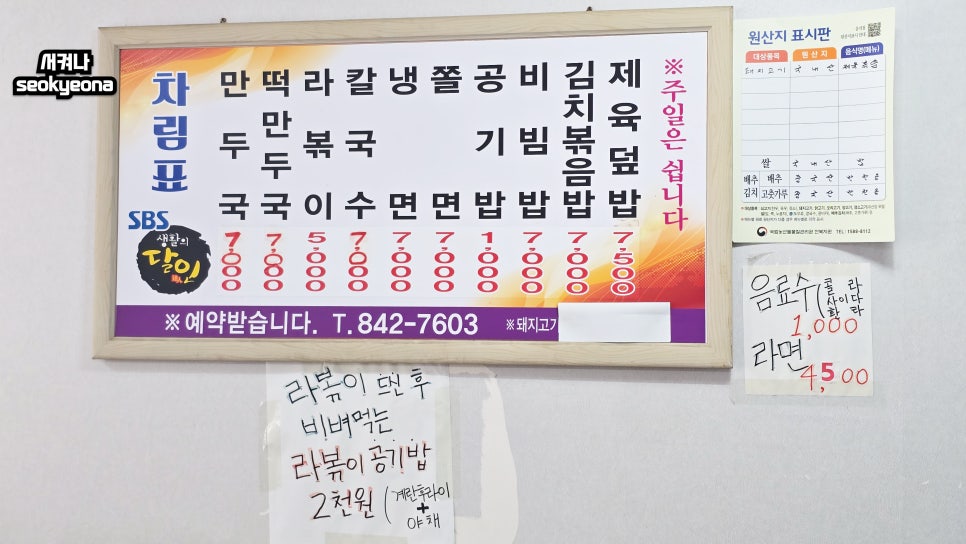 서켜나
seokyeona
차림표
만두국 7,000
떡만두국 7,000
라볶이 5,000
칼국수 7,000
냉면 7,000
쫄면 7,000
공기밥 1,000
비빔밥 7,000
김치볶음밥 7,000
제육덮밥 7,500
※주일은 쉽니다
SBS
생활의
달인
※ 예약받습니다. T. 842-7603 ※돼지고기
원산지 표시판
대상품목 원산지 음식명(메뉴)
돼지고기 국내산
쌀 국내산 밥
배추 배추 중국산
김치 고춧가루 중국산
TEL : 1588-8112
음료수 (콜라
사이다
환타
1,000
라면
4,500
라볶이 드신 후
비벼먹는
라볶이 공기밥
2천원 (계란후라이
+
야채